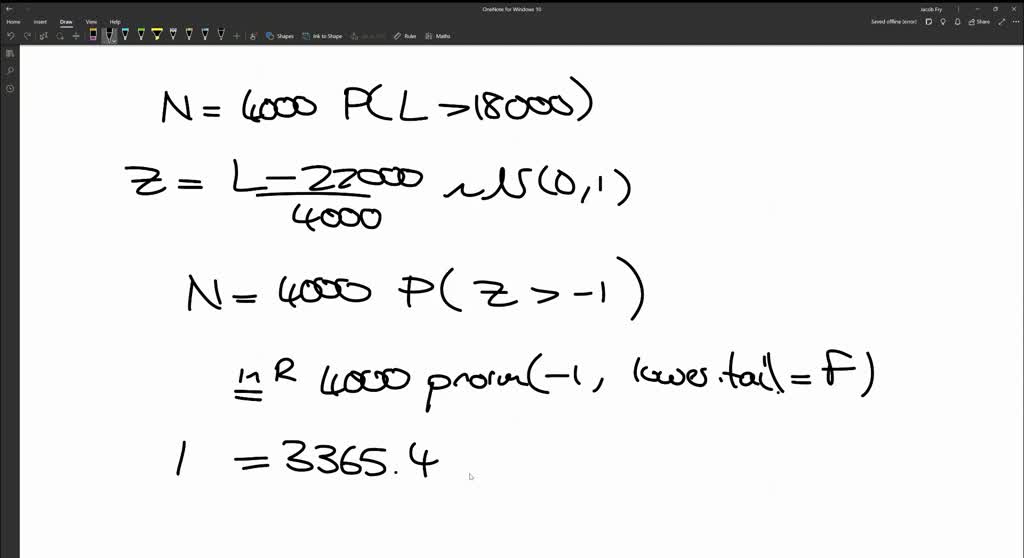 OneNote for Windows 10
Jacob Fry
Home Insert Draw View Help
Saved offline (error) Share
Shapes Ink to Shape Ruler Maths
N = 4000 P(L > 18000)
Z = L - 22000 ~ N(0,1)
4000
N = 4000 P(Z > -1)
in R 4000 pnorm(-1, lower.tail = F)
= 3365.4